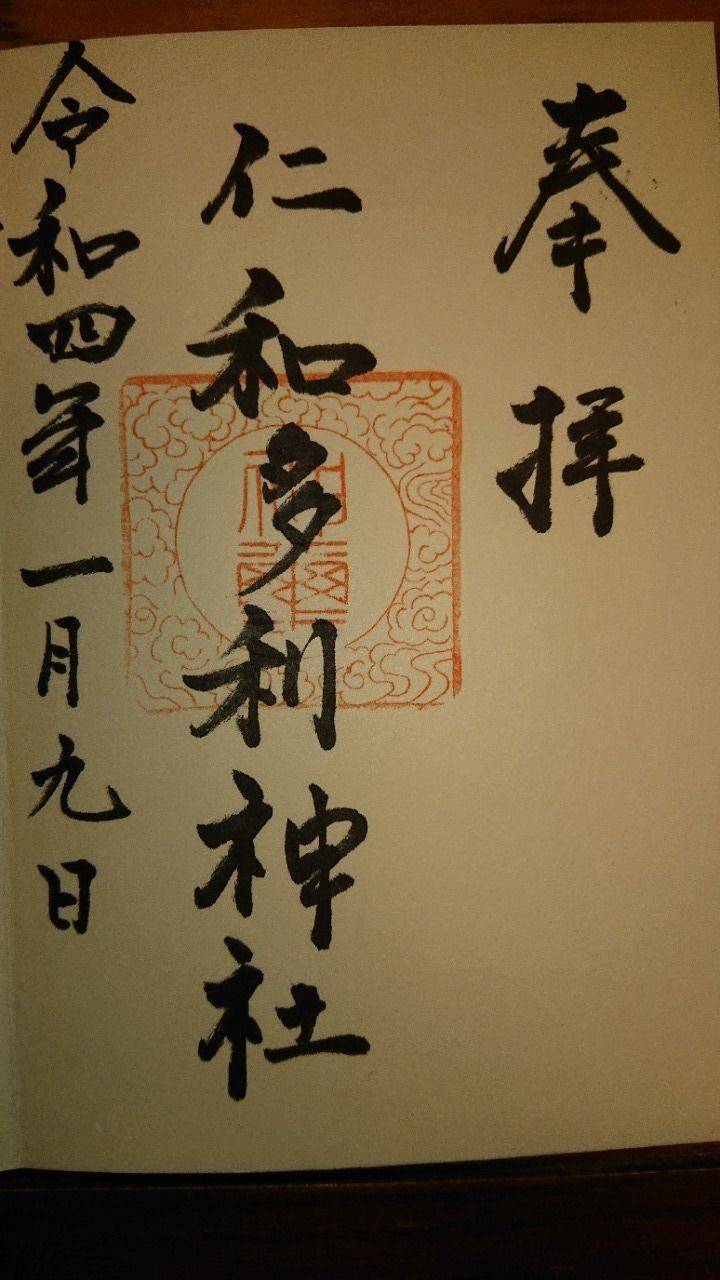 奉拝
仁和多利神社
令和四年一月九日